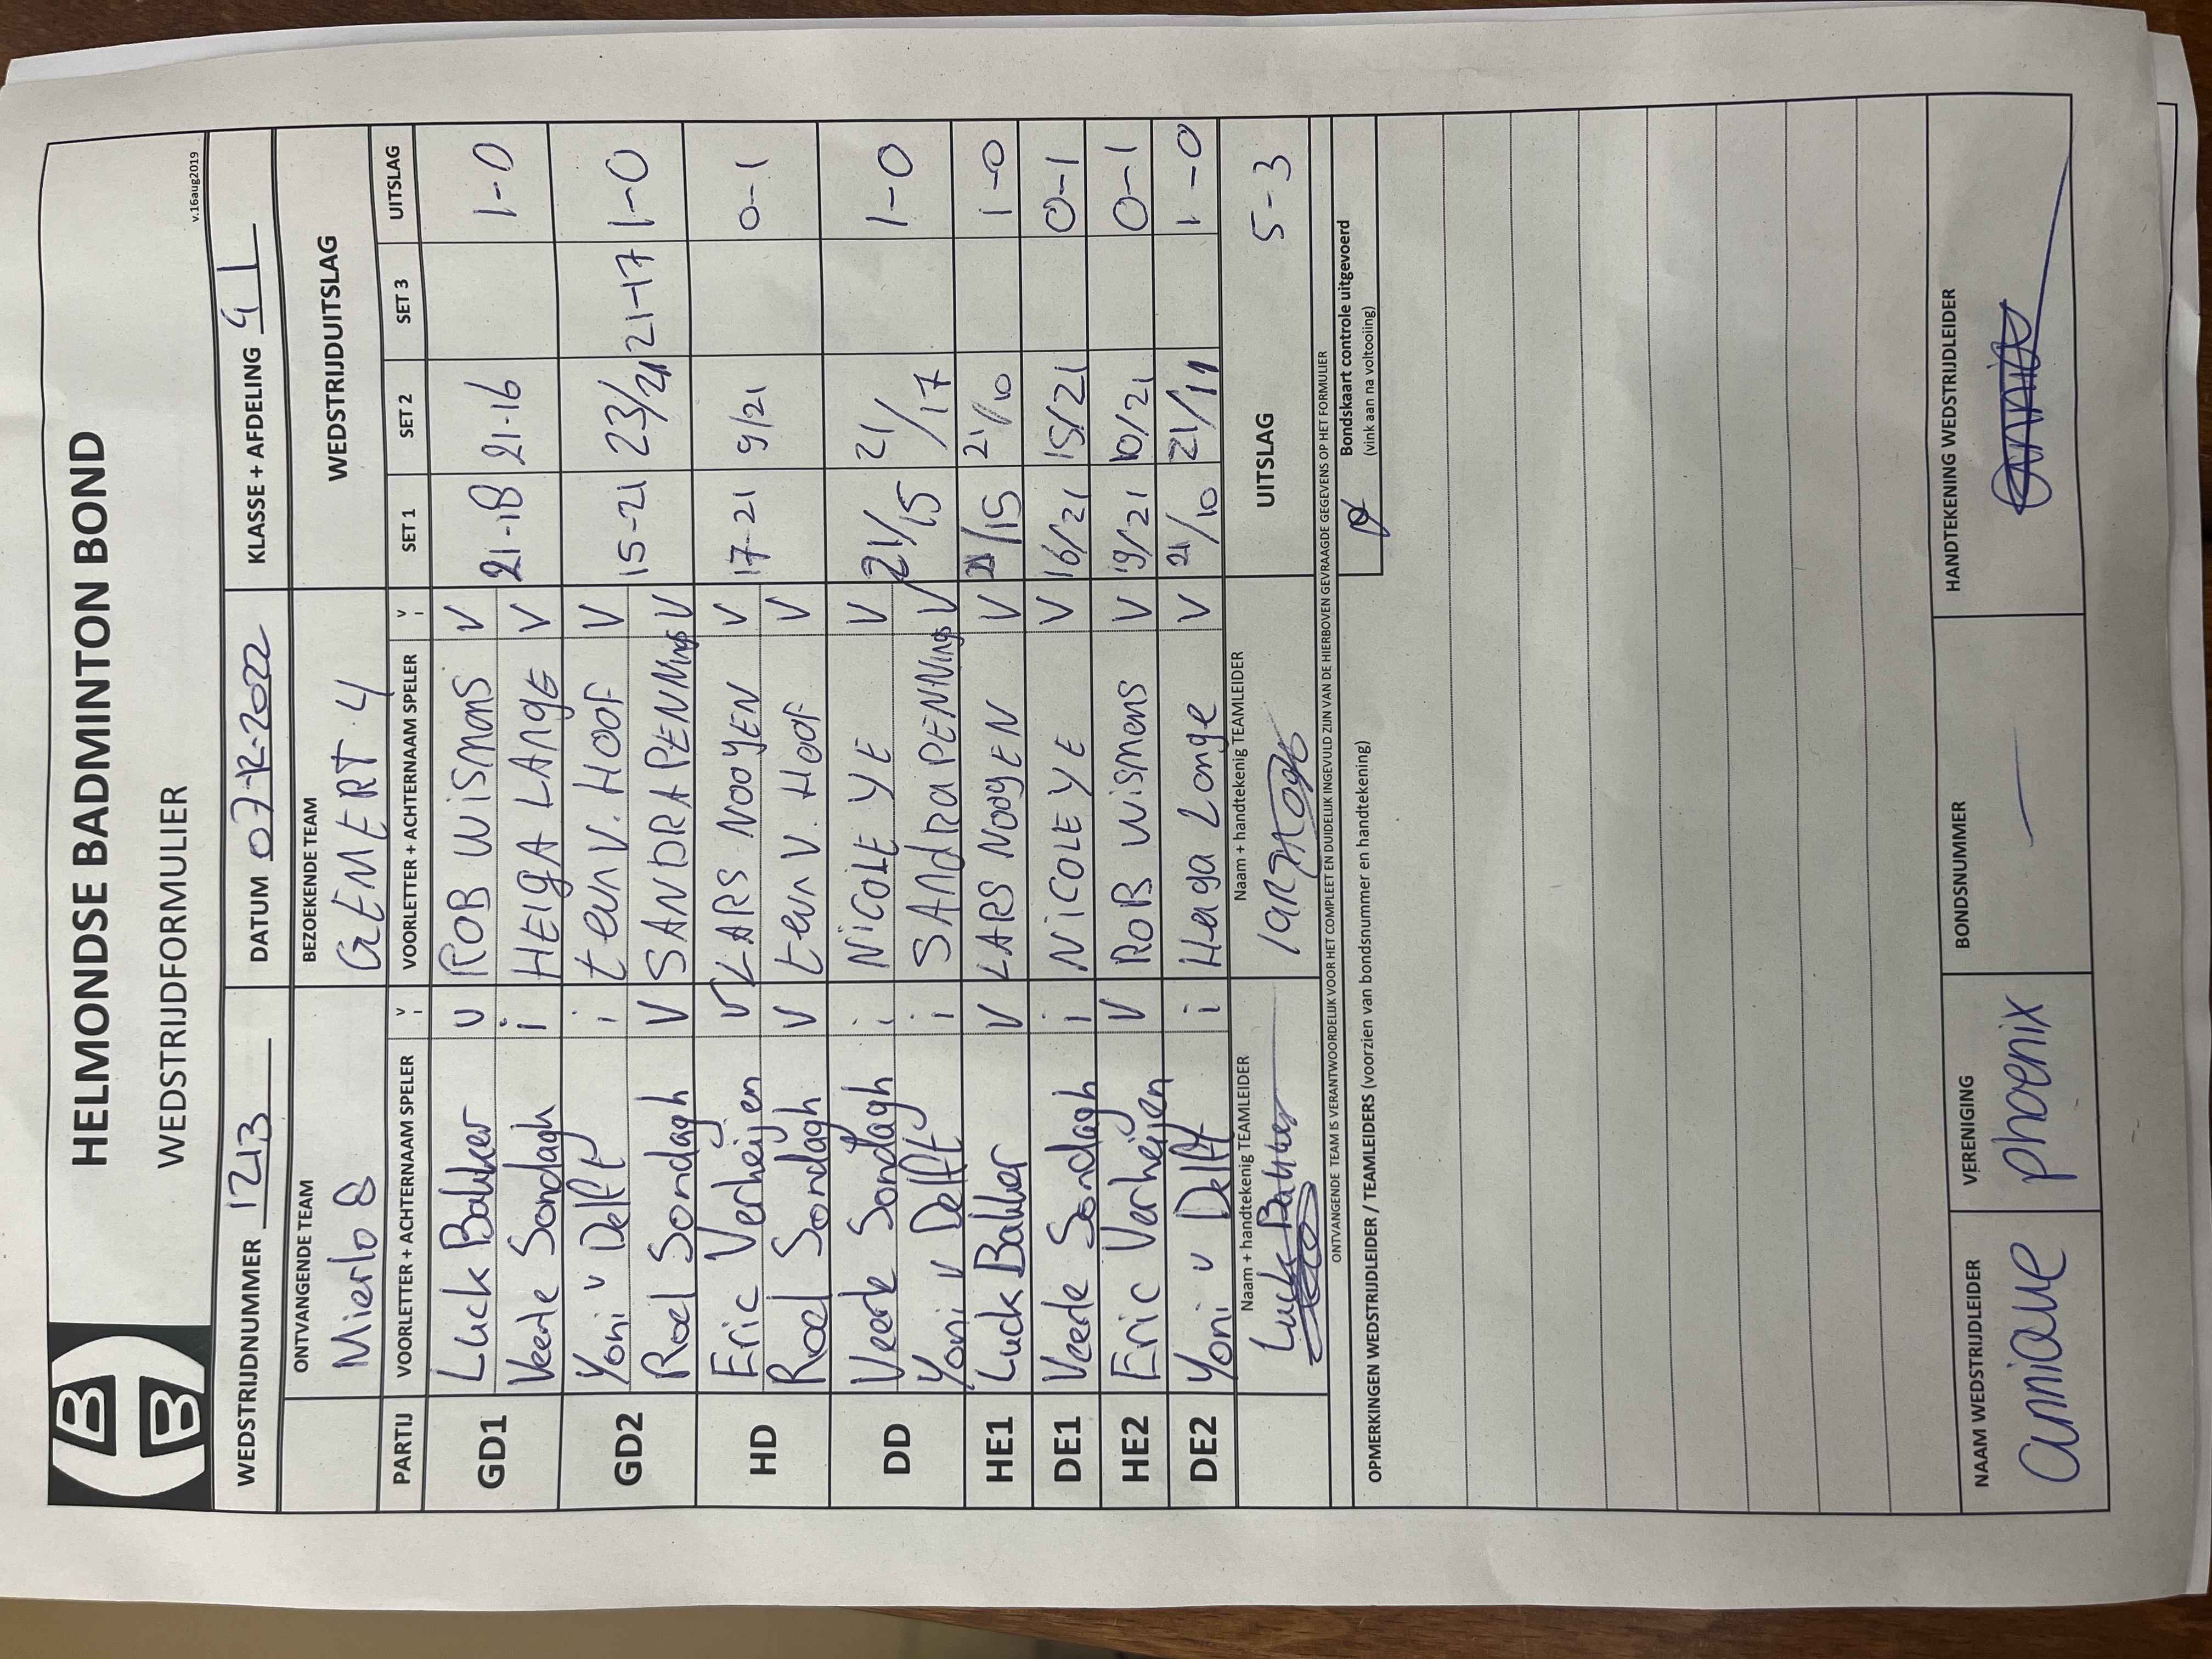 HELMONDSE BADMINTON BOND
WEDSTRIJDFORMULIER
v.16aug2019
WEDSTRIJDNUMMER 1213 DATUM 07-12-2022 KLASSE + AFDELING 4 1
ONTVANGENDE TEAM BEZOEKENDE TEAM WEDSTRIJDUITSLAG
Mierlo 8 GEMERT 4
PARTIJ VOORLETTER + ACHTERNAAM SPELER V i VOORLETTER + ACHTERNAAM SPELER V i SET 1 SET 2 SET 3 UITSLAG
GD1 Luck Bakker v ROB WiSMans V 21-18 21-16 1-0
Veerle Sondagh i HElgA LAngE V
GD2 Yoni v Delft i teun V. HOOF V 15-21 23/21 21-17 1-0
Roel Sondagh V SANDRA PENNings V
HD Eric Verheijen V LARS NooYEN V 17-21 9/21 0-1
Roel Sondagh V teun V. HOOF V
DD Veerle Sondagh i NiCOLE YE V 21/15 21/17 1-0
Yoni v Delft i SANdRa PENNings V
HE1 Luck Bakker V LARS NOOYEN V 21/15 21/10 1-0
DE1 Veerle Sondagh i NiCOLE YE V 16/21 15/21 0-1
HE2 Eric Verheijen V RoB Wismans V 19/21 10/21 0-1
DE2 Yoni v Delft i Helga Lange V 21/10 21/11 1-0
Naam + handtekenig TEAMLEIDER Naam + handtekenig TEAMLEIDER UITSLAG 5-3
Luck Bakker
ONTVANGENDE TEAM IS VERANTWOORDELIJK VOOR HET COMPLEET EN DUIDELIJK INGEVULD ZIJN VAN DE HIERBOVEN GEVRAAGDE GEGEVENS OP HET FORMULIER
OPMERKINGEN WEDSTRIJDLEIDER / TEAMLEIDERS (voorzien van bondsnummer en handtekening)
Bondskaart controle uitgevoerd
(vink aan na voltooiing)
NAAM WEDSTRIJDLEIDER VERENIGING BONDSNUMMER HANDTEKENING WEDSTRIJDLEIDER
anniane phoenix —